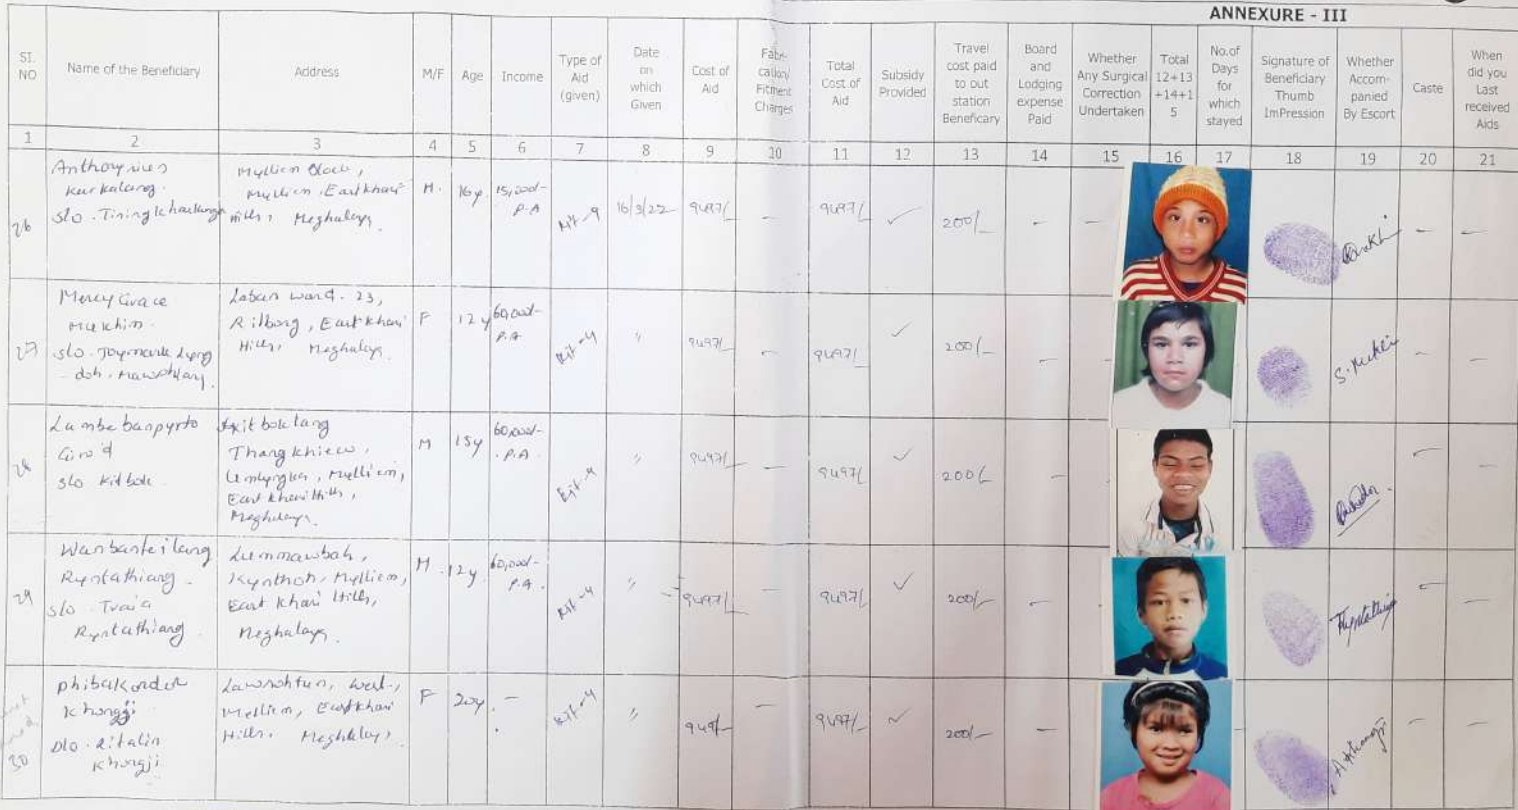 ANNEXURE - III
SI. NO
Name of the Beneficiary
Address
M/F
Age
Income
Type of Aid (given)
Date on which Given
Cost of Aid
Fabri-cation/ Fitment Charges
Total Cost of Aid
Subsidy Provided
Travel cost paid to out station Beneficiary
Board and Lodging expense Paid
Whether Any Surgical Correction Undertaken
Total 12+13 +14+1 5
No.of Days for which stayed
Signature of Beneficiary Thumb ImPression
Whether Accom-panied By Escort
Caste
When did you Last received Aids
1 2 3 4 5 6 7 8 9 10 11 12 13 14 15 16 17 18 19 20 21
26
Anthony
Kurkalang
s/o
Mylliem Block,
Mylliem, East Khasi
Hills, Meghalaya.
M. 16y. 15,000/-
P.A
16/3/22 9497/- 9497/- 200/-
27
Mercy Grace
Mukhim
s/o
Laban ward - 23,
Rilbong, East Khasi
Hills, Meghalaya.
F 12y 60,000/-
P.A
Kit-4 " 9497/- 9497/- 200/-
S. Mukhim
28
s/o Kitbok
Kitboklang
Thangkhiew,
Umlyngka, Mylliem,
East Khasi Hills,
Meghalaya.
M 15y 60,000/-
P.A
" 9497/- 9497/- 200/-
29
Wanbanteilang
Ryntathiang
s/o
Ryntathiang
Lummawbah,
Kynthoh, Mylliem,
East Khasi Hills,
Meghalaya.
M 12y 60,000/-
P.A.
Kit-4 " 9497/- 9497/- 200/-
30
Phibakordor
Khongji
D/o Ritalin
Khongji
Lawsohtun, West,
Mylliem, East Khasi
Hills, Meghalaya
F 20y -
Kit-4 " 949/- 9497/- 200/-